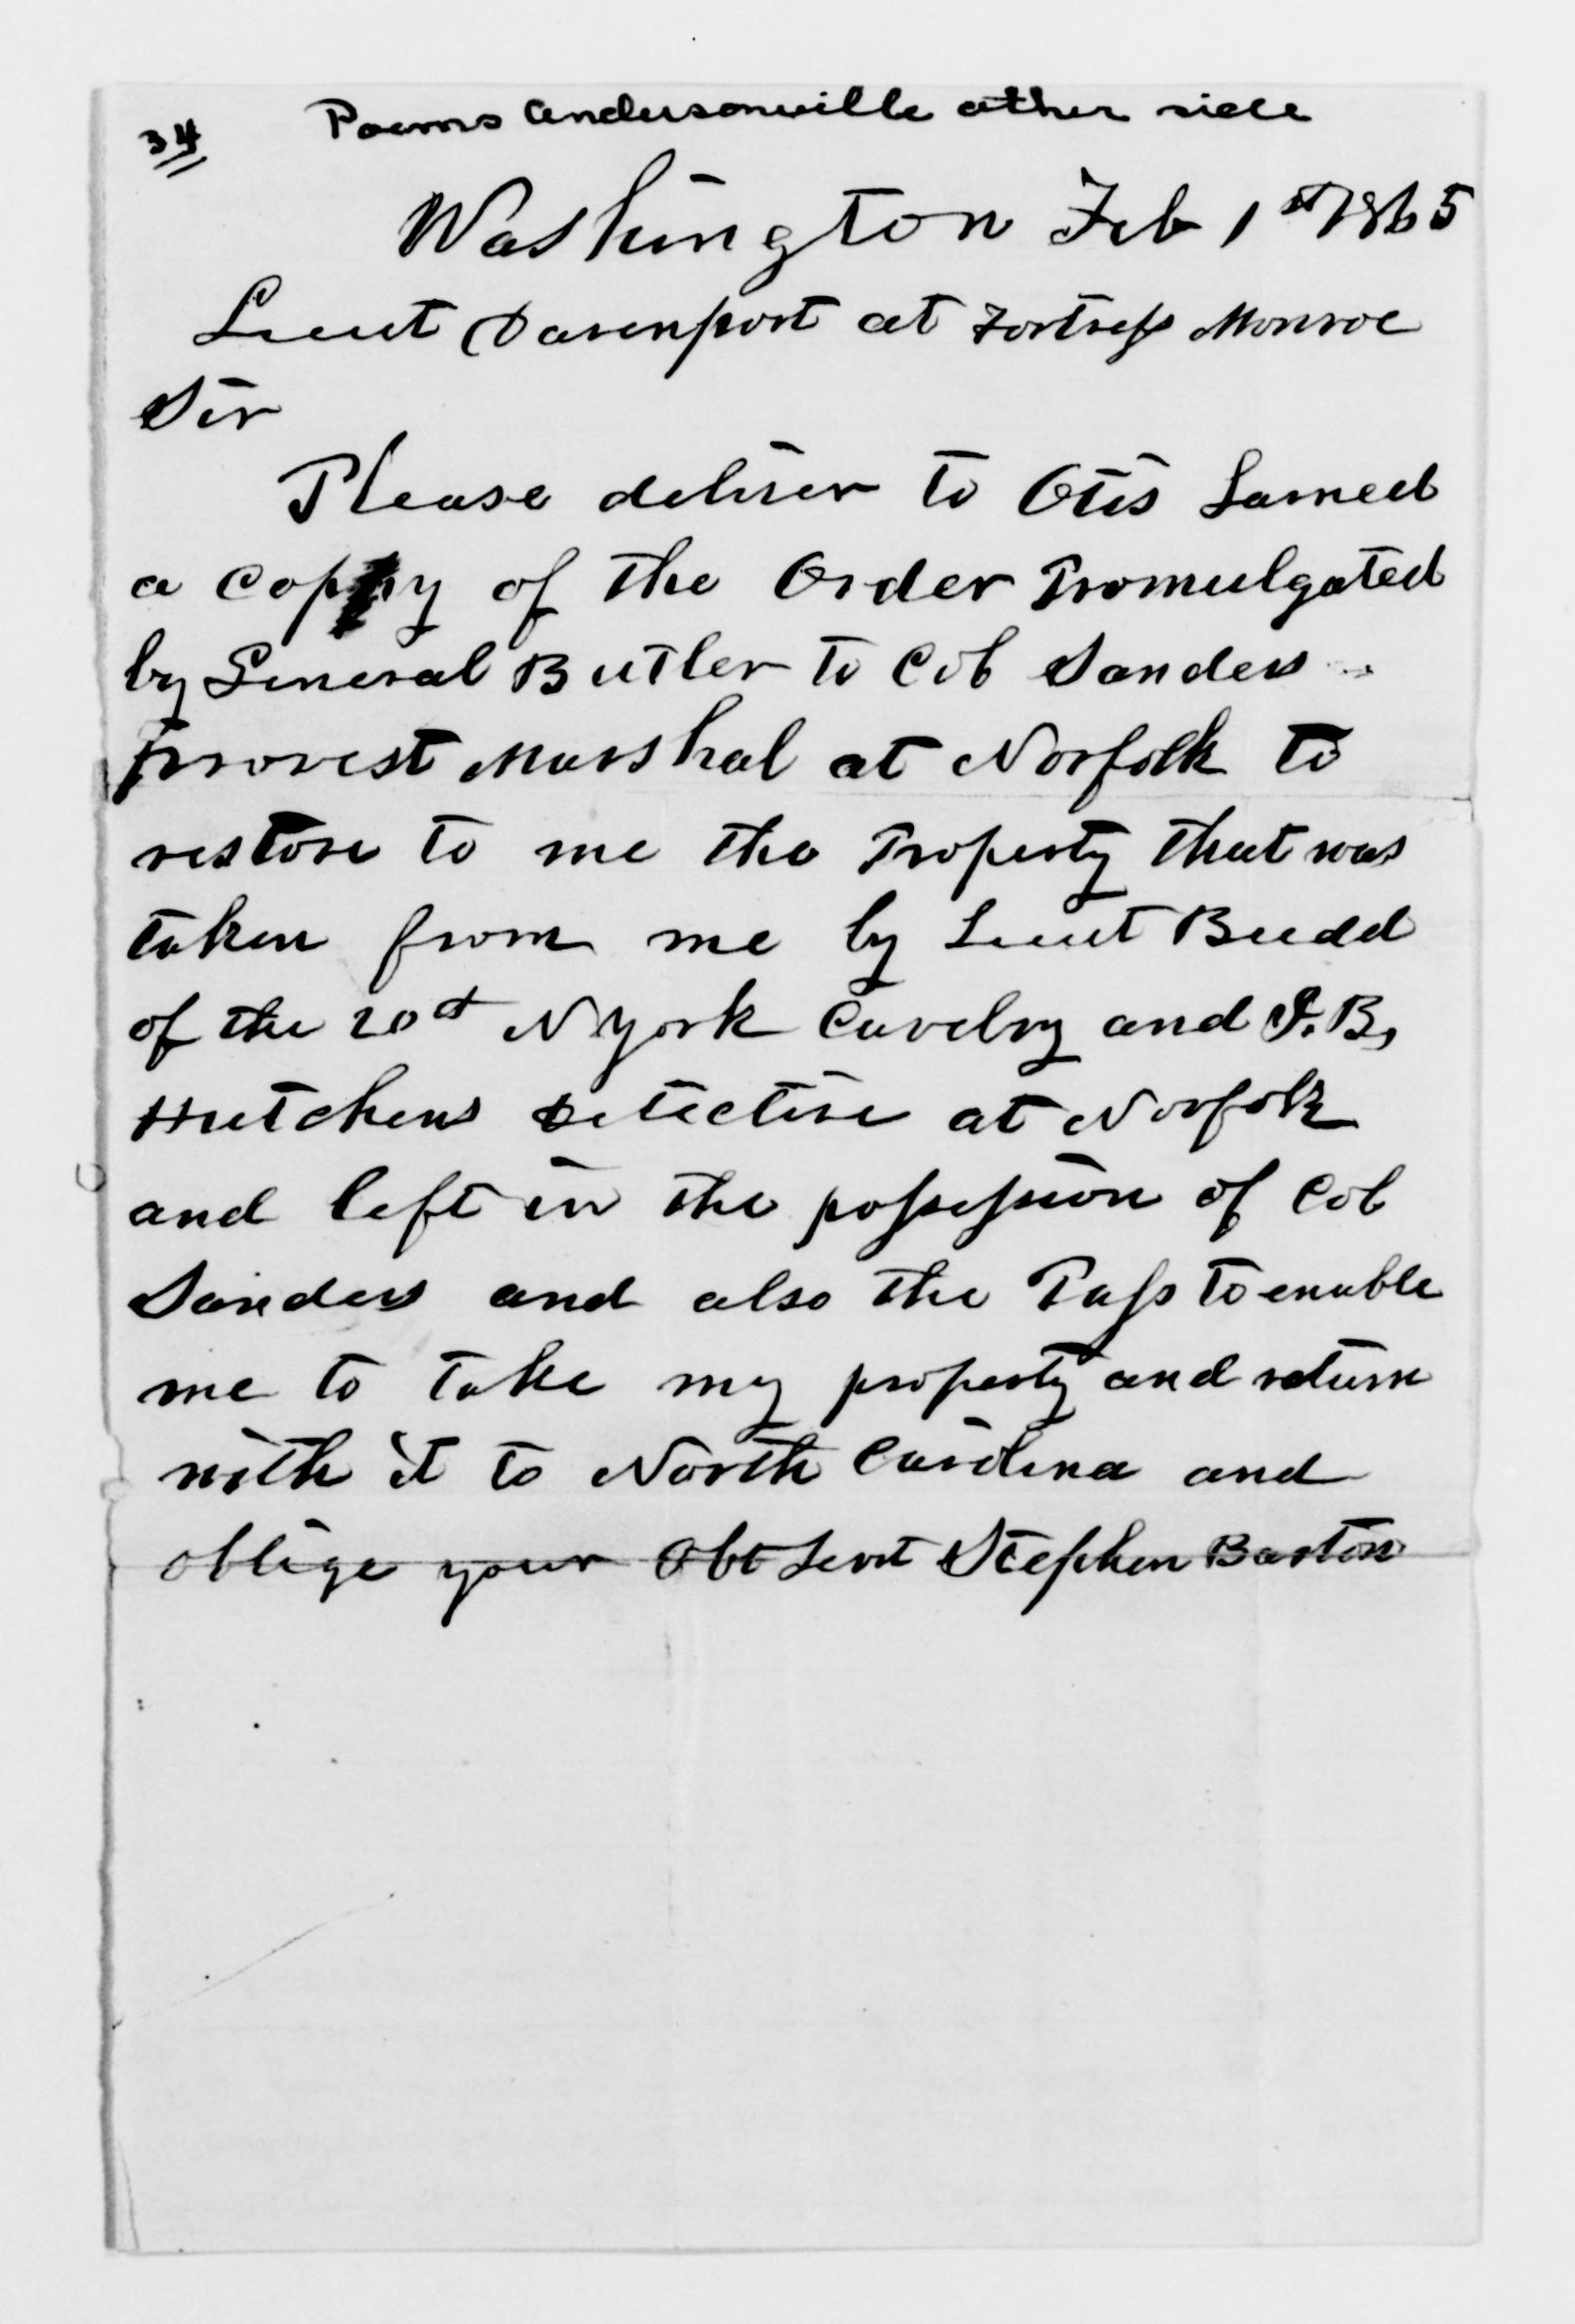 34 Poems Andersonville other side
Washington Feb 1st 1865
Lieut Davenport at Fortress Monroe
Sir
Please deliver to Otis Larned
a Copy of the Order Promulgated
by General Butler to Col Sanders
provost Marshal at Norfolk to
restore to me the Property that was
taken from me by Lieut Budd
of the 20th N York Cavelry and
Hutchens Detective at Norfolk
and left in the possession of Col
Sanders and also the Pass to enable
me to take my property and return
with it to North Carolina and
oblige your Obt Servt Stephen Barton